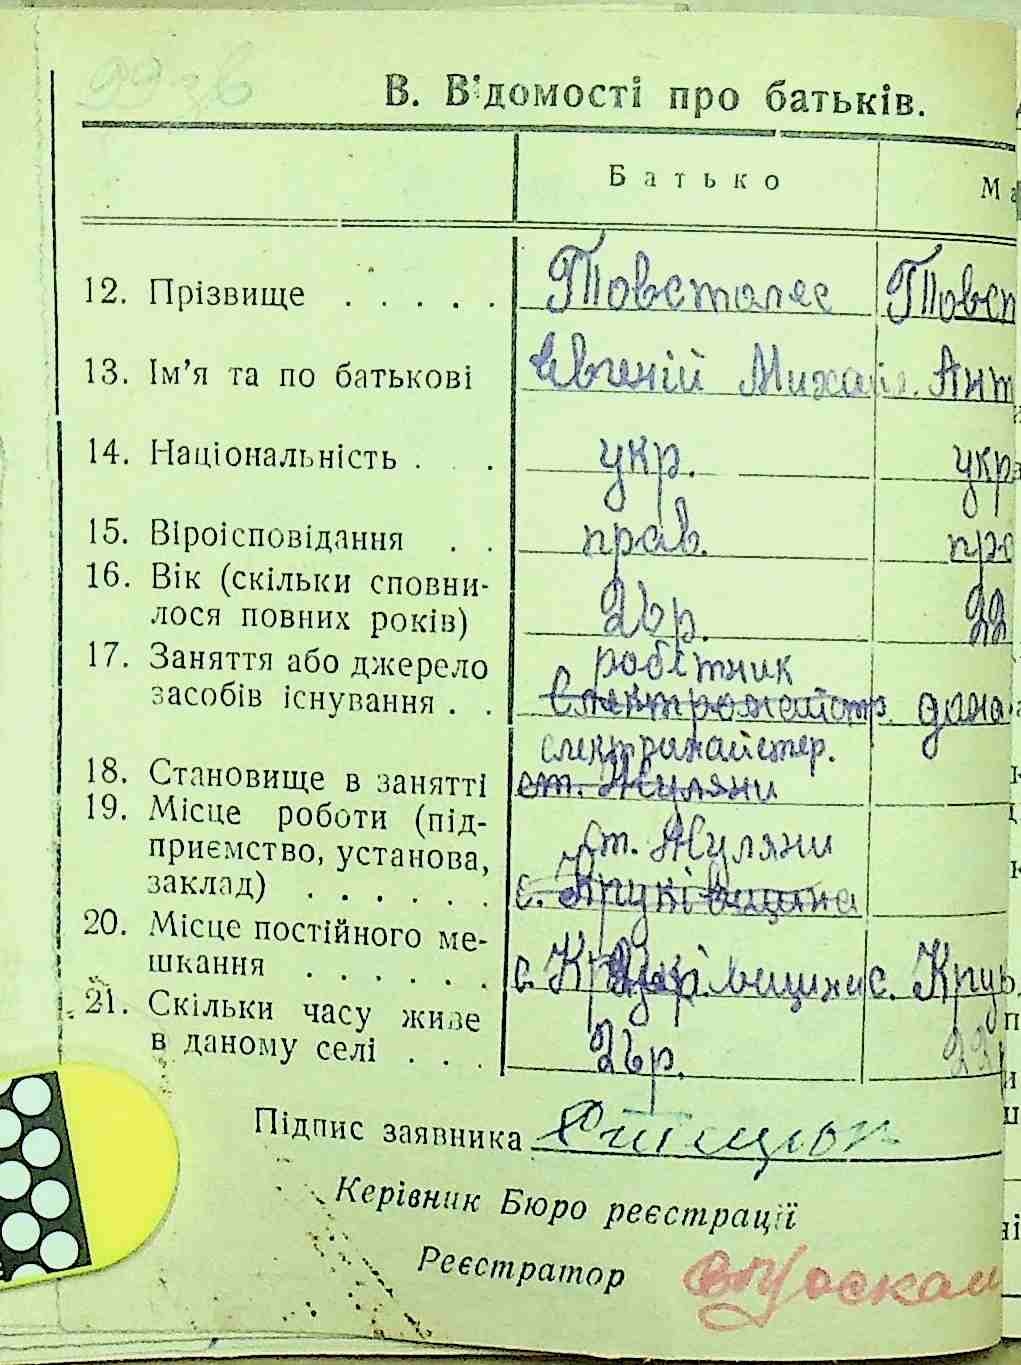 В. Відомості про батьків.
Батько Ма
12. Прізвище . . . . . Товстоляс Товст
13. Ім’я та по батькові Євгеній Михайл. Ант
14. Національність . . . укр. укр
15. Віроісповідання . . прав. пра
16. Вік (скільки сповни-
лося повних років) 26р. 22
17. Заняття або джерело робітник
засобів існування . . електромайстр.
електромайстер.
18. Становище в занятті ст. Жуляни
19. Місце роботи (під-
приємство, установа, ст. Жуляни
заклад) . . . . . . с. Крюківщина
20. Місце постійного ме-
шкання . . . . . . с. с. Крю
21. Скільки часу живе
в даному селі . . . 26р. 22
Підпис заявника
Керівник Бюро реєстрації
Реєстратор